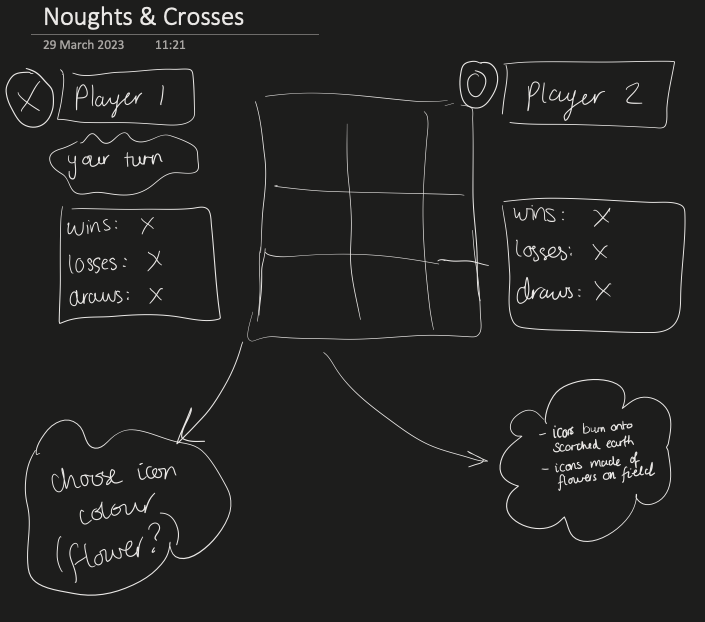 Noughts & Crosses
29 March 2023 11:21
X Player 1
your turn
wins: X
losses: X
draws: X
O Player 2
wins: X
losses: X
draws: X
choose icon
colour
(flower?)
- icons burn onto
scorched earth
- icons made of
flowers on field